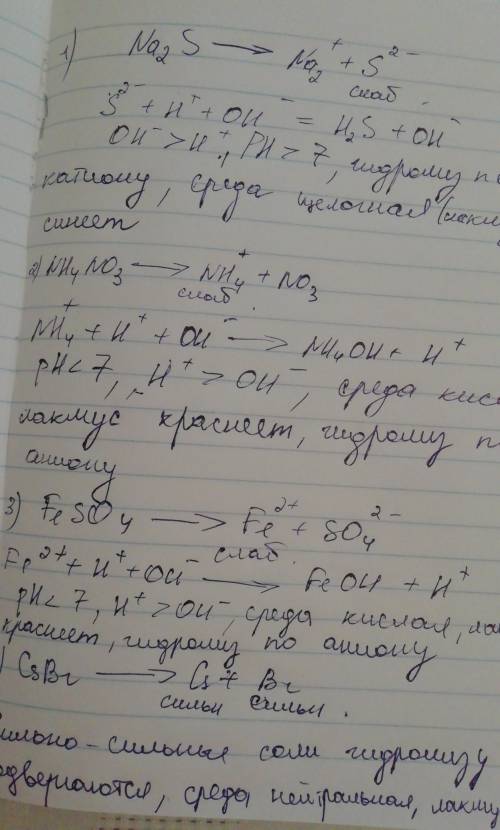 1) Na₂S → Na₂⁺ + S²⁻
слаб.
S²⁻ + H⁺ + OH⁻ = H₂S + OH⁻
OH⁻ > H⁺, PH > 7, гидролиз по
катиону, среда щелочная (лакму
синеет
2) NH₄NO₃ → NH₄⁺ + NO₃
слаб.
NH₄⁺ + H⁺ + OH⁻ → NH₄OH + H⁺
pH < 7, H⁺ > OH⁻, среда кисл
лакмус краснеет, гидролиз п
аниону
3) FeSO₄ → Fe²⁺ + SO₄²⁻
слаб.
Fe²⁺ + H⁺ + OH⁻ → FeOH + H⁺
pH < 7, H⁺ > OH⁻, среда кислая, лак
краснеет, гидролиз по аниону
) CsBr → Cs + Br
сильн сильн.
сильно-сильные соли гидролизу
подвергаются, среда нейтральная, лакму